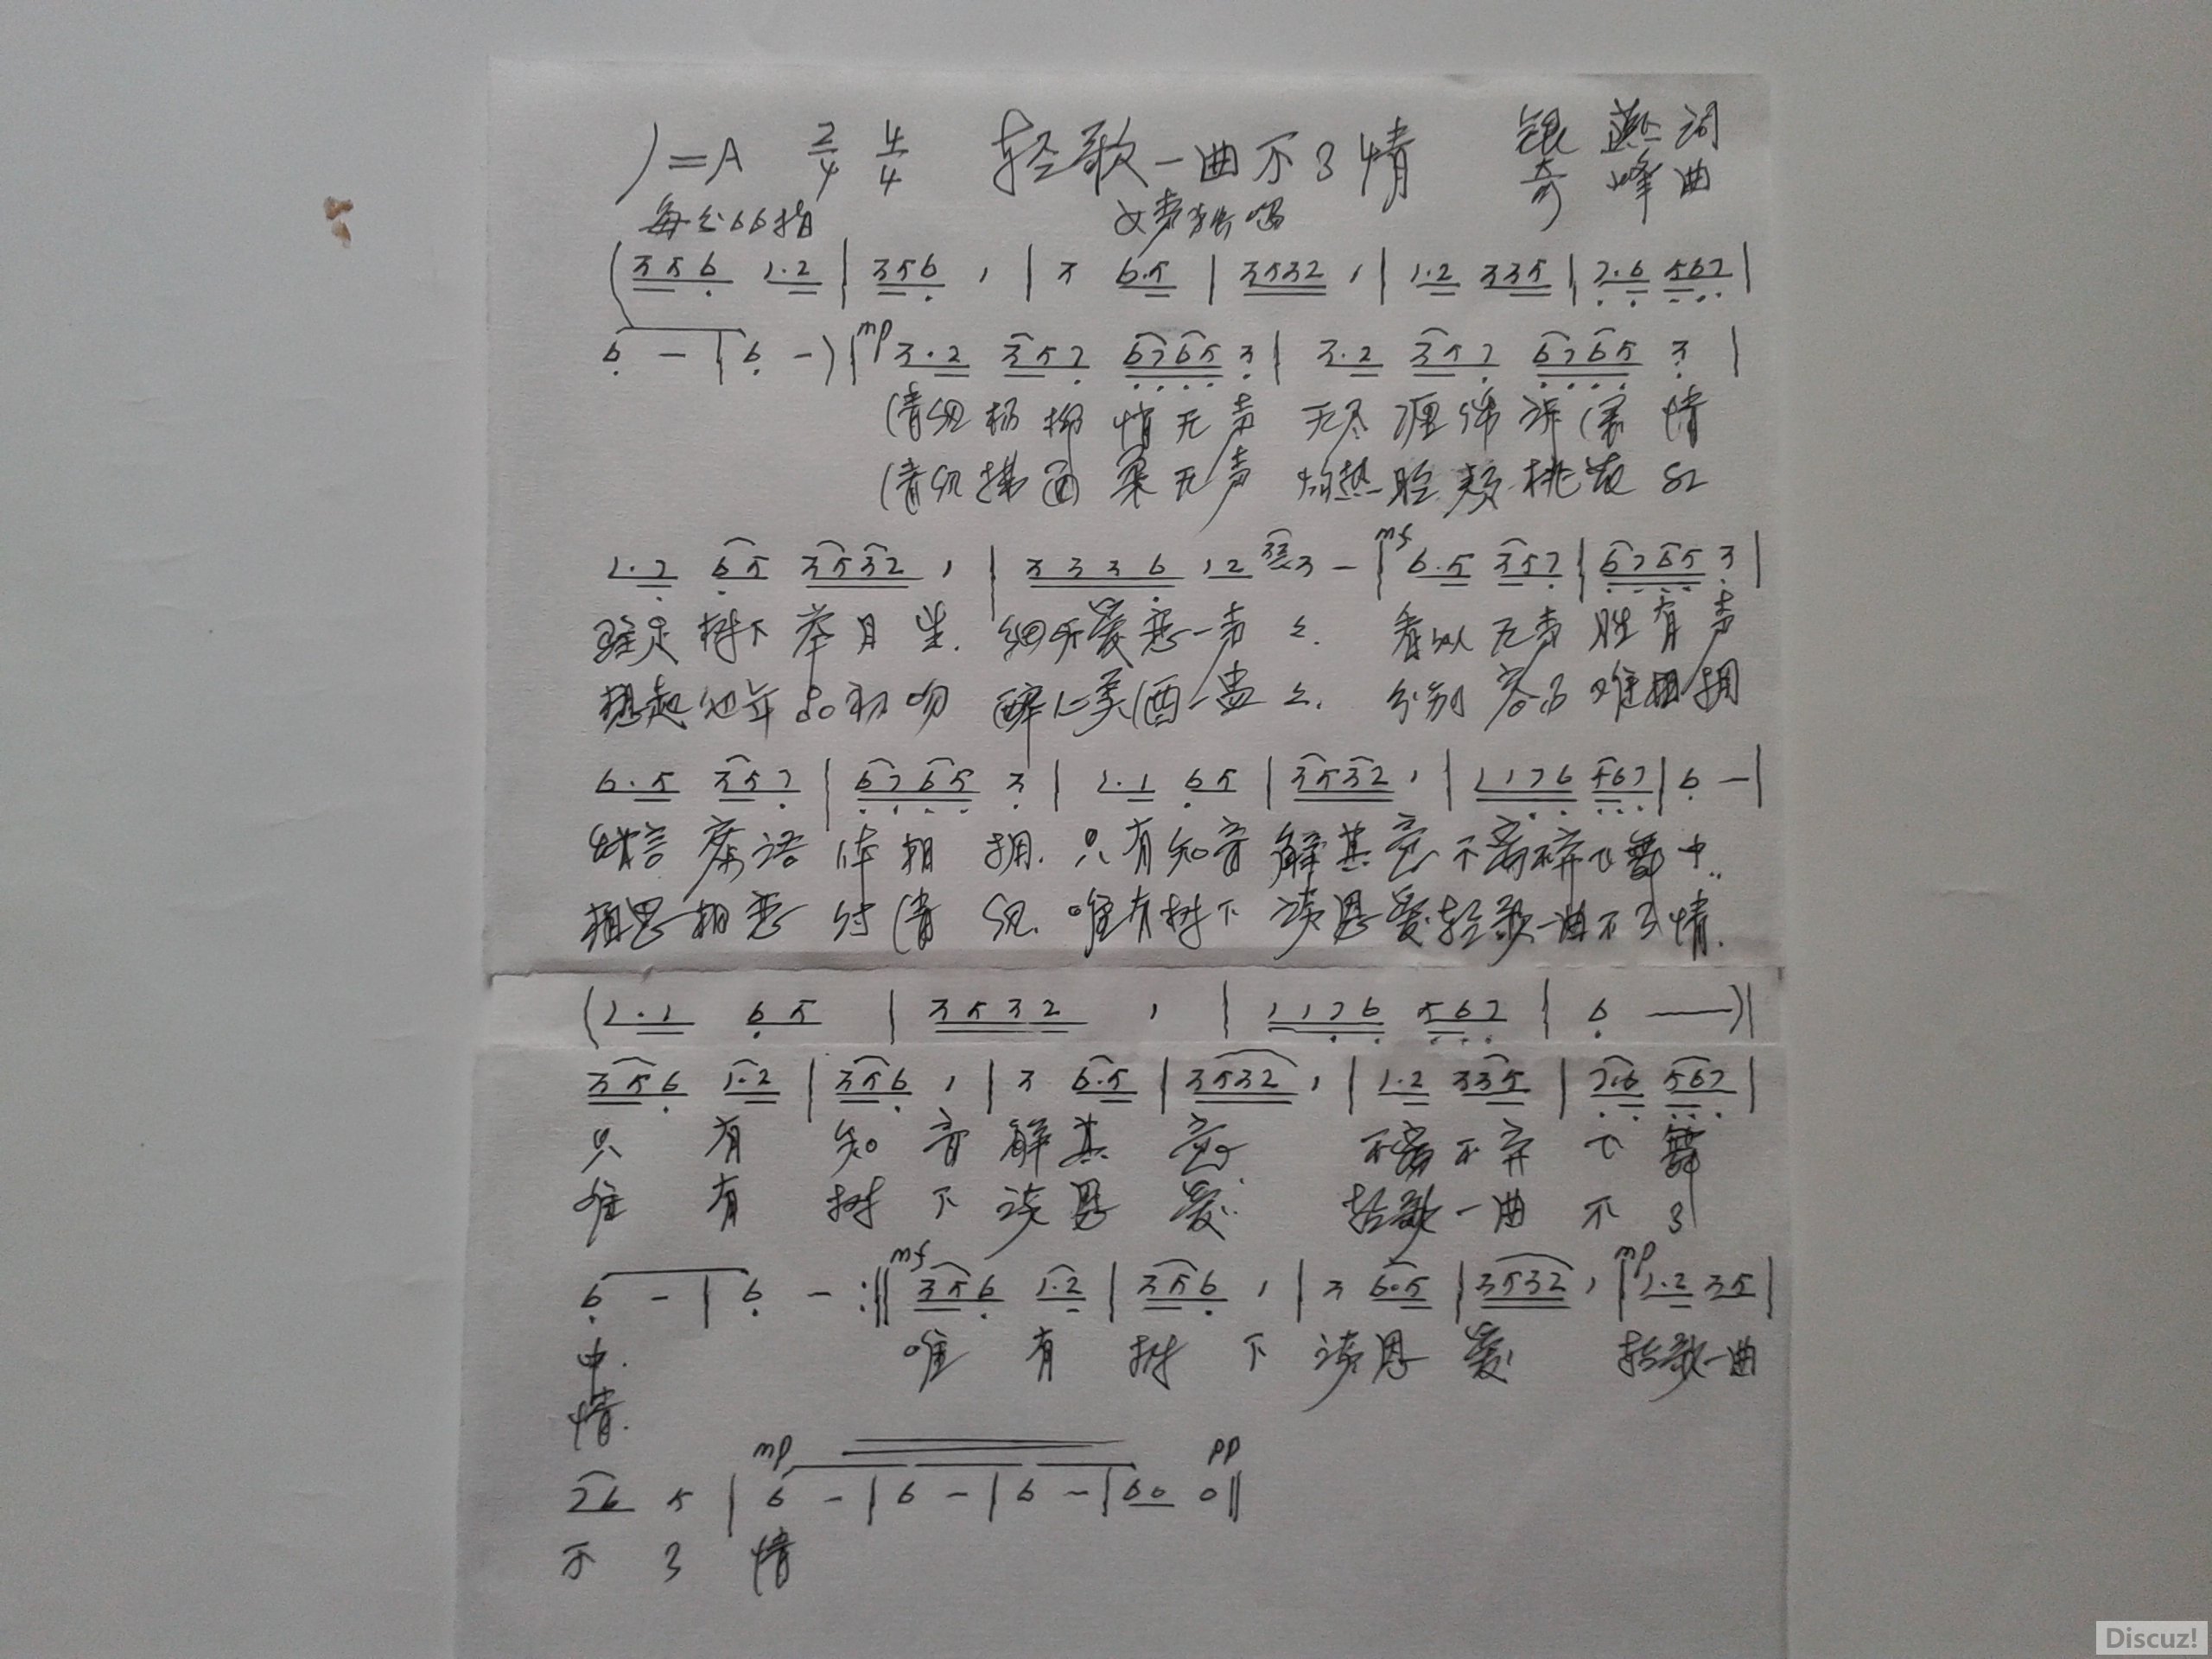 1=A 2/4 4/4 轻歌一曲不了情 银燕词
每分66拍 女声独唱 奇峰曲
(356 1·2 | 356 1 | 3 6·5 | 3532 1 | 1·2 335 | 7·6 567 |
6 - | 6 -) | mp 3·2 357 6765 3 | 3·2 357 6765 3 |
倩 杨柳悄无声 无尽 情
倩 拂面柔无声 灼热脸颊桃发红
1·2 65 3532 1 | 3336 12 3 - | mf 6·5 357 | 6765 3 |
树下 月 细听爱恋一声声. 看似无声胜有声
想起 年 初吻 醉 美酒一盅盅. 分别 难相拥
6·5 357 | 6765 3 | 1·1 65 | 3532 1 | 1176 567 | 6 - |
语 相拥. 只有知音解其意不离不弃飞舞中.
相思相恋付倩 唯有树下谈恩爱轻歌一曲不了情.
(1·1 65 | 3532 1 | 1176 567 | 6 —)|
356 1·2 | 356 1 | 3 6·5 | 3532 1 | 1·2 335 | 7·6 567 |
只有知音解其意 不离不弃飞舞
唯有树下谈恩爱 轻歌一曲不了
6 - | 6 - :‖ mf 356 1·2 | 356 1 | 3 6·5 | 3532 1 | mp 1·2 35 |
中. 唯有树下谈恩爱 轻歌一曲
情.
76 5 | mp 6 - | 6 - | 6 - | 60 pp 0 ‖
不了情
Discuz!